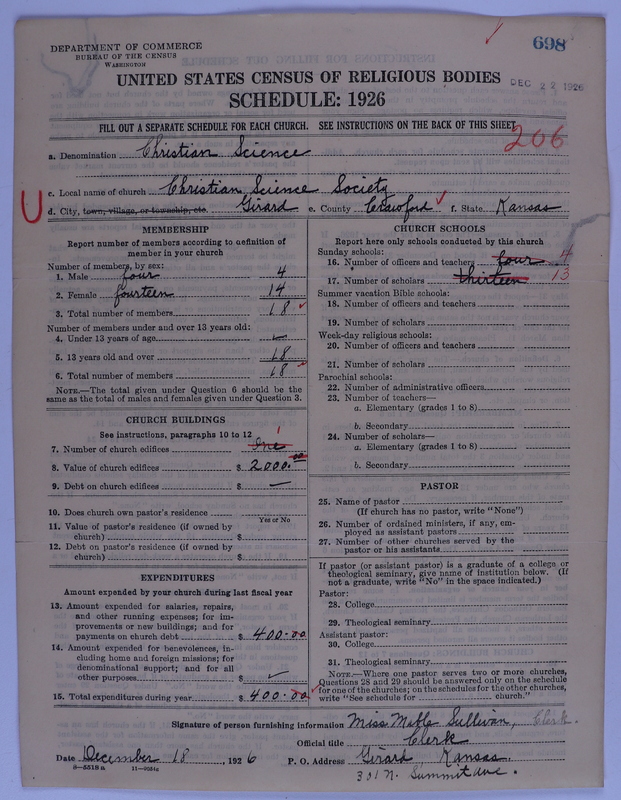 698
DEPARTMENT OF COMMERCE
BUREAU OF THE CENSUS
WASHINGTON
UNITED STATES CENSUS OF RELIGIOUS BODIES
DEC 22 1926
SCHEDULE: 1926
FILL OUT A SEPARATE SCHEDULE FOR EACH CHURCH. SEE INSTRUCTIONS ON THE BACK OF THIS SHEET
206
a. Denomination Christian Science
c. Local name of church Christian Science Society
U
d. City, town, village, or township, etc. Girard e. County Crawford f. State Kansas
MEMBERSHIP
Report number of members according to definition of
member in your church
Number of members, by sex:
1. Male four 4
2. Female fourteen 14
3. Total number of members 18
Number of members under and over 13 years old:
4. Under 13 years of age
5. 13 years old and over 18
6. Total number of members 18
NOTE.—The total given under Question 6 should be the
same as the total of males and females given under Question 3.
CHURCH BUILDINGS
See instructions, paragraphs 10 to 12
7. Number of church edifices One 1
8. Value of church edifices $ 2000.00
9. Debt on church edifices $ —
10. Does church own pastor's residence
Yes or No
11. Value of pastor's residence (if owned by
church) $
12. Debt on pastor's residence (if owned by
church) $
EXPENDITURES
Amount expended by your church during last fiscal year
13. Amount expended for salaries, repairs,
and other running expenses; for im-
provements or new buildings; and for
payments on church debt $ 400.00
14. Amount expended for benevolences, in-
cluding home and foreign missions; for
denominational support; and for all
other purposes $
15. Total expenditures during year $ 400.00
CHURCH SCHOOLS
Report here only schools conducted by this church
Sunday schools:
16. Number of officers and teachers four 4
17. Number of scholars thirteen 13
Summer vacation Bible schools:
18. Number of officers and teachers
19. Number of scholars
Week-day religious schools:
20. Number of officers and teachers
21. Number of scholars
Parochial schools:
22. Number of administrative officers
23. Number of teachers—
a. Elementary (grades 1 to 8)
b. Secondary
24. Number of scholars—
a. Elementary (grades 1 to 8)
b. Secondary
PASTOR
25. Name of pastor
(If church has no pastor, write "None")
26. Number of ordained ministers, if any, em-
ployed as assistant pastors
27. Number of other churches served by the
pastor or his assistants
If pastor (or assistant pastor) is a graduate of a college or
theological seminary, give name of institution below. (If
not a graduate, write "No" in the space indicated.)
Pastor:
28. College
29. Theological seminary
Assistant pastor:
30. College
31. Theological seminary
NOTE.—Where one pastor serves two or more churches,
Questions 28 and 29 should be answered only on the schedule
for one of the churches; on the schedules for the other churches,
write "See schedule for church."
Signature of person furnishing information Miss Mable Sullivan, Clerk.
Official title Clerk
Date December 18, 1926 P. O. Address Girard, Kansas.
301 N. Summit ave.
8—5518a 11—9034a